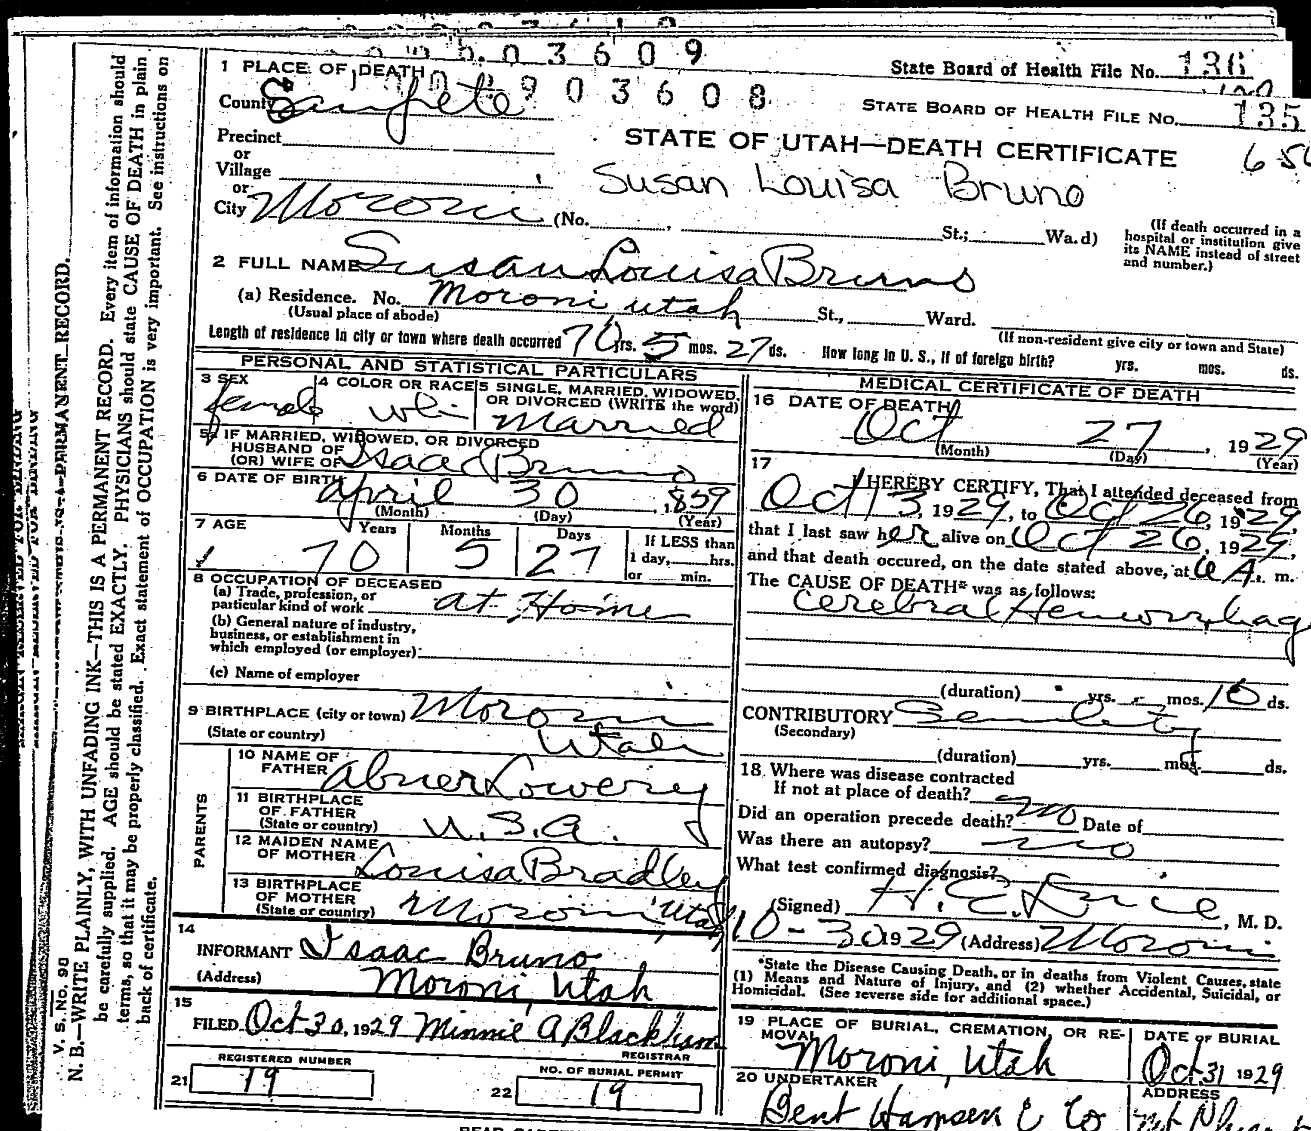 003609
State Board of Health File No. 136
1 PLACE OF DEATH
903608
STATE BOARD OF HEALTH FILE NO. 135
County Sanpete
STATE OF UTAH—DEATH CERTIFICATE
Precinct
or
Village
Susan Louisa Bruno
or
City Moroni (No. , St.; Wa.d)
(If death occurred in a
hospital or institution give
its NAME instead of street
and number.)
2 FULL NAME Susan Louisa Bruno
(a) Residence. No. Moroni, Utah St., Ward.
(Usual place of abode)
(If non-resident give city or town and State)
Length of residence in city or town where death occurred 70 yrs. 5 mos. 27 ds. How long in U. S., if of foreign birth? yrs. mos. ds.
PERSONAL AND STATISTICAL PARTICULARS
3 SEX
female
4 COLOR OR RACE
whi
5 SINGLE, MARRIED, WIDOWED,
OR DIVORCED (WRITE the word)
Married
5a IF MARRIED, WIDOWED, OR DIVORCED
HUSBAND OF
(OR) WIFE OF Isaac Bruno
6 DATE OF BIRTH April 30, 1859
(Month) (Day) (Year)
7 AGE Years Months Days
70 5 27
If LESS than
1 day, hrs.
or min.
8 OCCUPATION OF DECEASED
(a) Trade, profession, or
particular kind of work at Home
(b) General nature of industry,
business, or establishment in
which employed (or employer):
(c) Name of employer
9 BIRTHPLACE (city or town) Moroni
(State or country) Utah
PARENTS
10 NAME OF
FATHER Abner Lowery
11 BIRTHPLACE
OF FATHER
(State or country) U.S.A.
12 MAIDEN NAME
OF MOTHER Louisa Bradley
13 BIRTHPLACE
OF MOTHER
(State or country) Moroni, Utah
14
INFORMANT Isaac Bruno
(Address) Moroni, Utah
15
FILED Oct 30, 1929 Minnie A Blackham
REGISTRAR
REGISTERED NUMBER
21 19
NO. OF BURIAL PERMIT
22 19
MEDICAL CERTIFICATE OF DEATH
16 DATE OF DEATH
Oct 27, 1929
(Month) (Day) (Year)
17
I HEREBY CERTIFY, That I attended deceased from
Oct 13, 1929, to Oct 26, 1929,
that I last saw her alive on Oct 26, 1929,
and that death occured, on the date stated above, at 6 A. m.
The CAUSE OF DEATH* was as follows:
Cerebral Hemorrhag
(duration) yrs. mos. ds.
CONTRIBUTORY Senility
(Secondary)
(duration) yrs. mos. ds.
18 Where was disease contracted
If not at place of death?
Did an operation precede death? no Date of
Was there an autopsy? no
What test confirmed diagnosis?
(Signed) H. E. , M. D.
10-30 1929 (Address) Moroni
*State the Disease Causing Death, or in deaths from Violent Causes, state
(1) Means and Nature of Injury, and (2) whether Accidental, Suicidal, or
Homicidal. (See reverse side for additional space.)
19 PLACE OF BURIAL, CREMATION, OR RE-
MOVAL
Moroni, Utah
DATE OF BURIAL
Oct 31 1929
20 UNDERTAKER
Bent Hansen & Co
ADDRESS
V. S. No. 98
N. B.—WRITE PLAINLY, WITH UNFADING INK—THIS IS A PERMANENT RECORD. Every item of information should
be carefully supplied. AGE should be stated EXACTLY. PHYSICIANS should state CAUSE OF DEATH in plain
terms, so that it may be properly classified. Exact statement of OCCUPATION is very important. See instructions on
back of certificate.